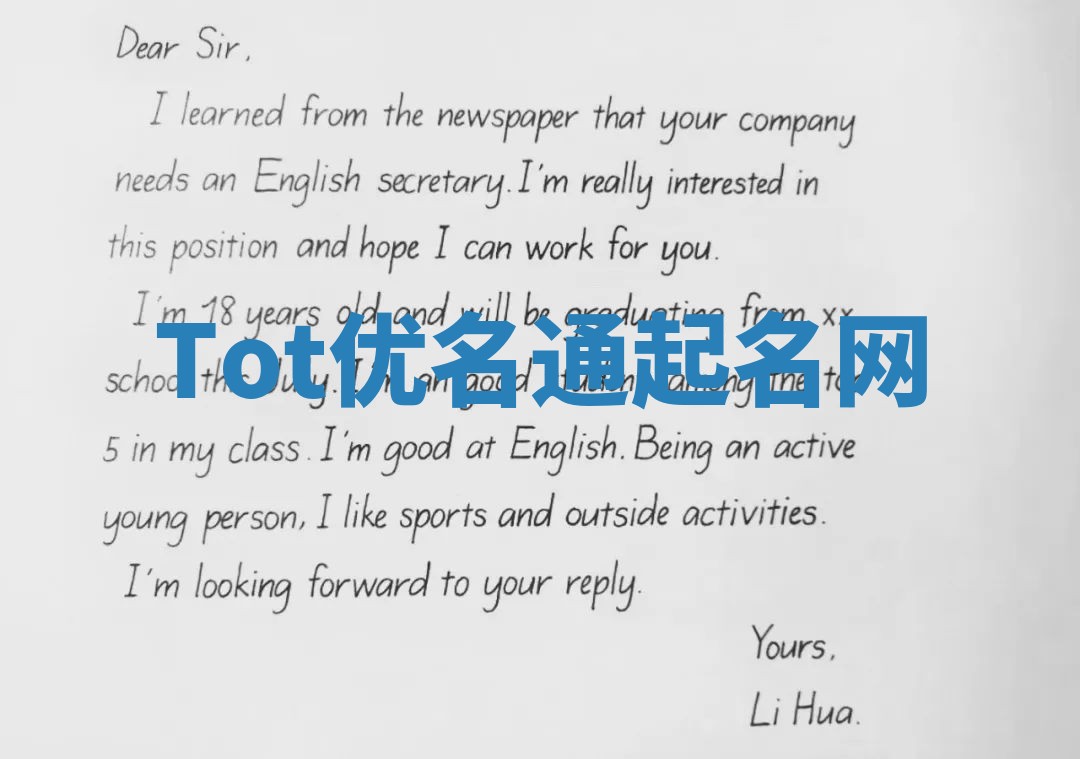 Dear Sir,
I learned from the newspaper that your company
needs an English secretary. I'm really interested in
this position and hope I can work for you.
I'm 18 years old and will be graduating from xx
school this July. I'm an good student among the top
Tot优名通起名网
5 in my class. I'm good at English. Being an active
young person, I like sports and outside activities.
I'm looking forward to your reply.
Yours,
Li Hua.